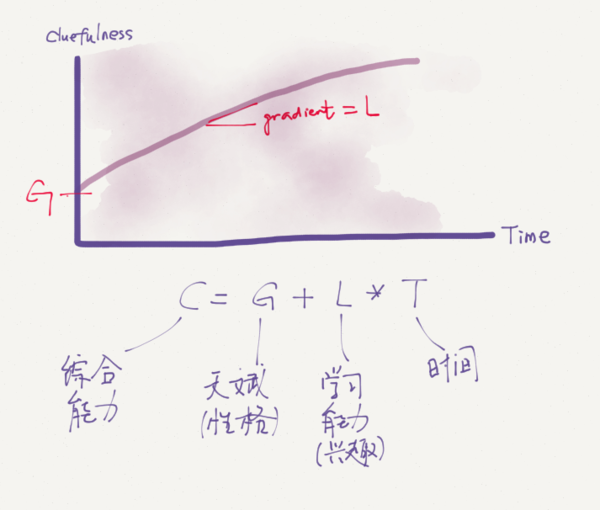 Cluefulness
gradient = L
G
Time
C = G + L * T
综合
能力
天斌
(性格)
学习
能力
(兴趣)
时间